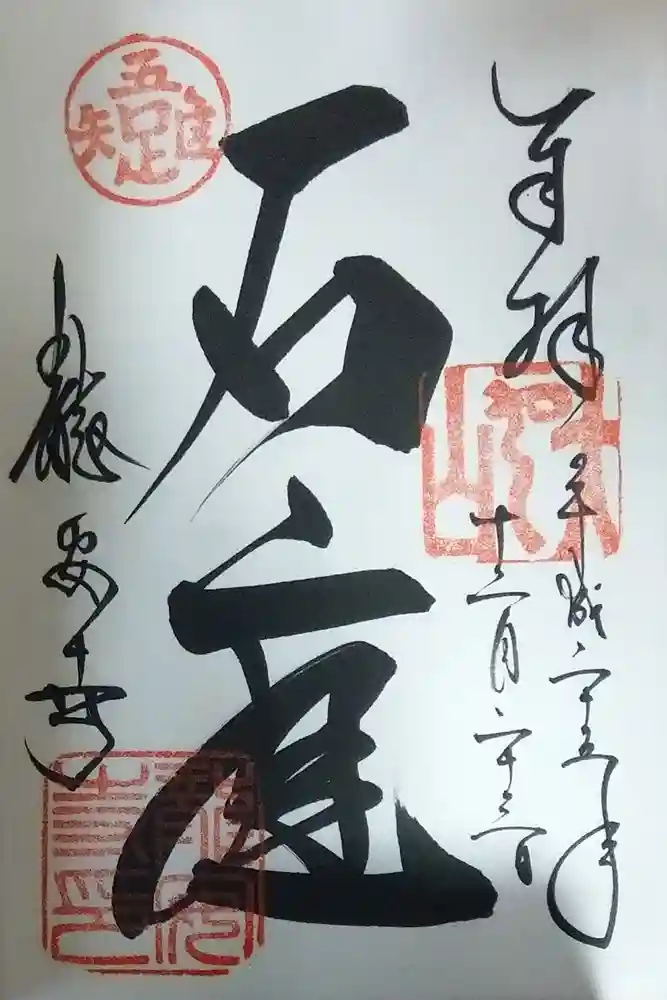 奉拝 平成二十五年
十二月二十二日
石庭
吾唯足知
龍安寺